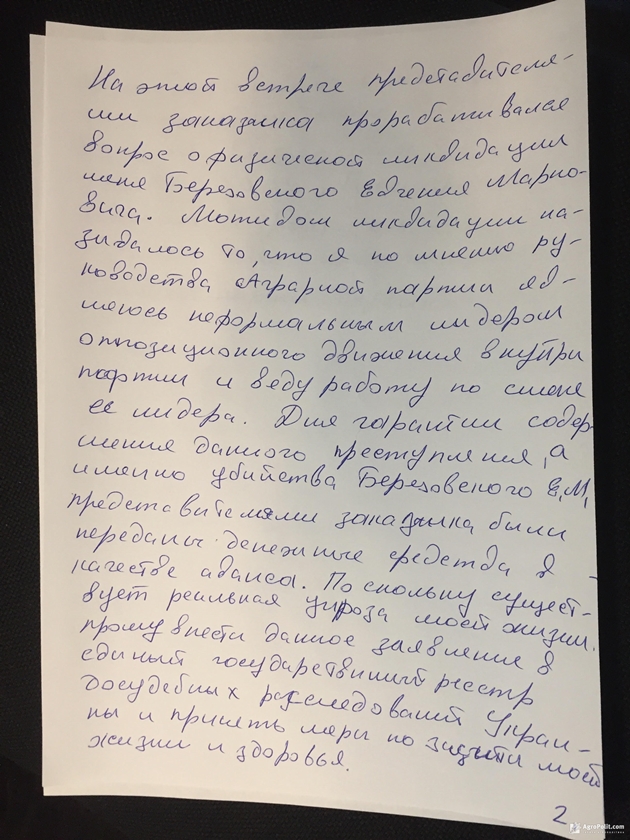 На этой встрече представителя-
ми заказчика прорабатывался
вопрос о физической ликвидации
меня Березовского Евгения Марко-
вича. Мотивом ликвидации на-
зывалось то, что я по мнению ру-
ководства Аграрной партии яв-
ляюсь неформальным лидером
оппозиционного движения внутри
партии и веду работу по смене
её лидера. Для гарантии совер-
шения данного преступления, а
именно убийства Березовского Е.М,
представителями заказчика были
переданы денежные средства в
качестве аванса. Поскольку сущест-
вует реальная угроза моей жизни.
прошу внести данное заявление в
единый государственный реестр
досудебных расследований Украи-
ны и принять меры по защите моей
жизни и здоровья.
2
AgroPolit.com